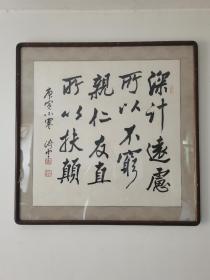 深計遠慮
所以不窮
親仁友直
所以扶顛
庚寅小寒